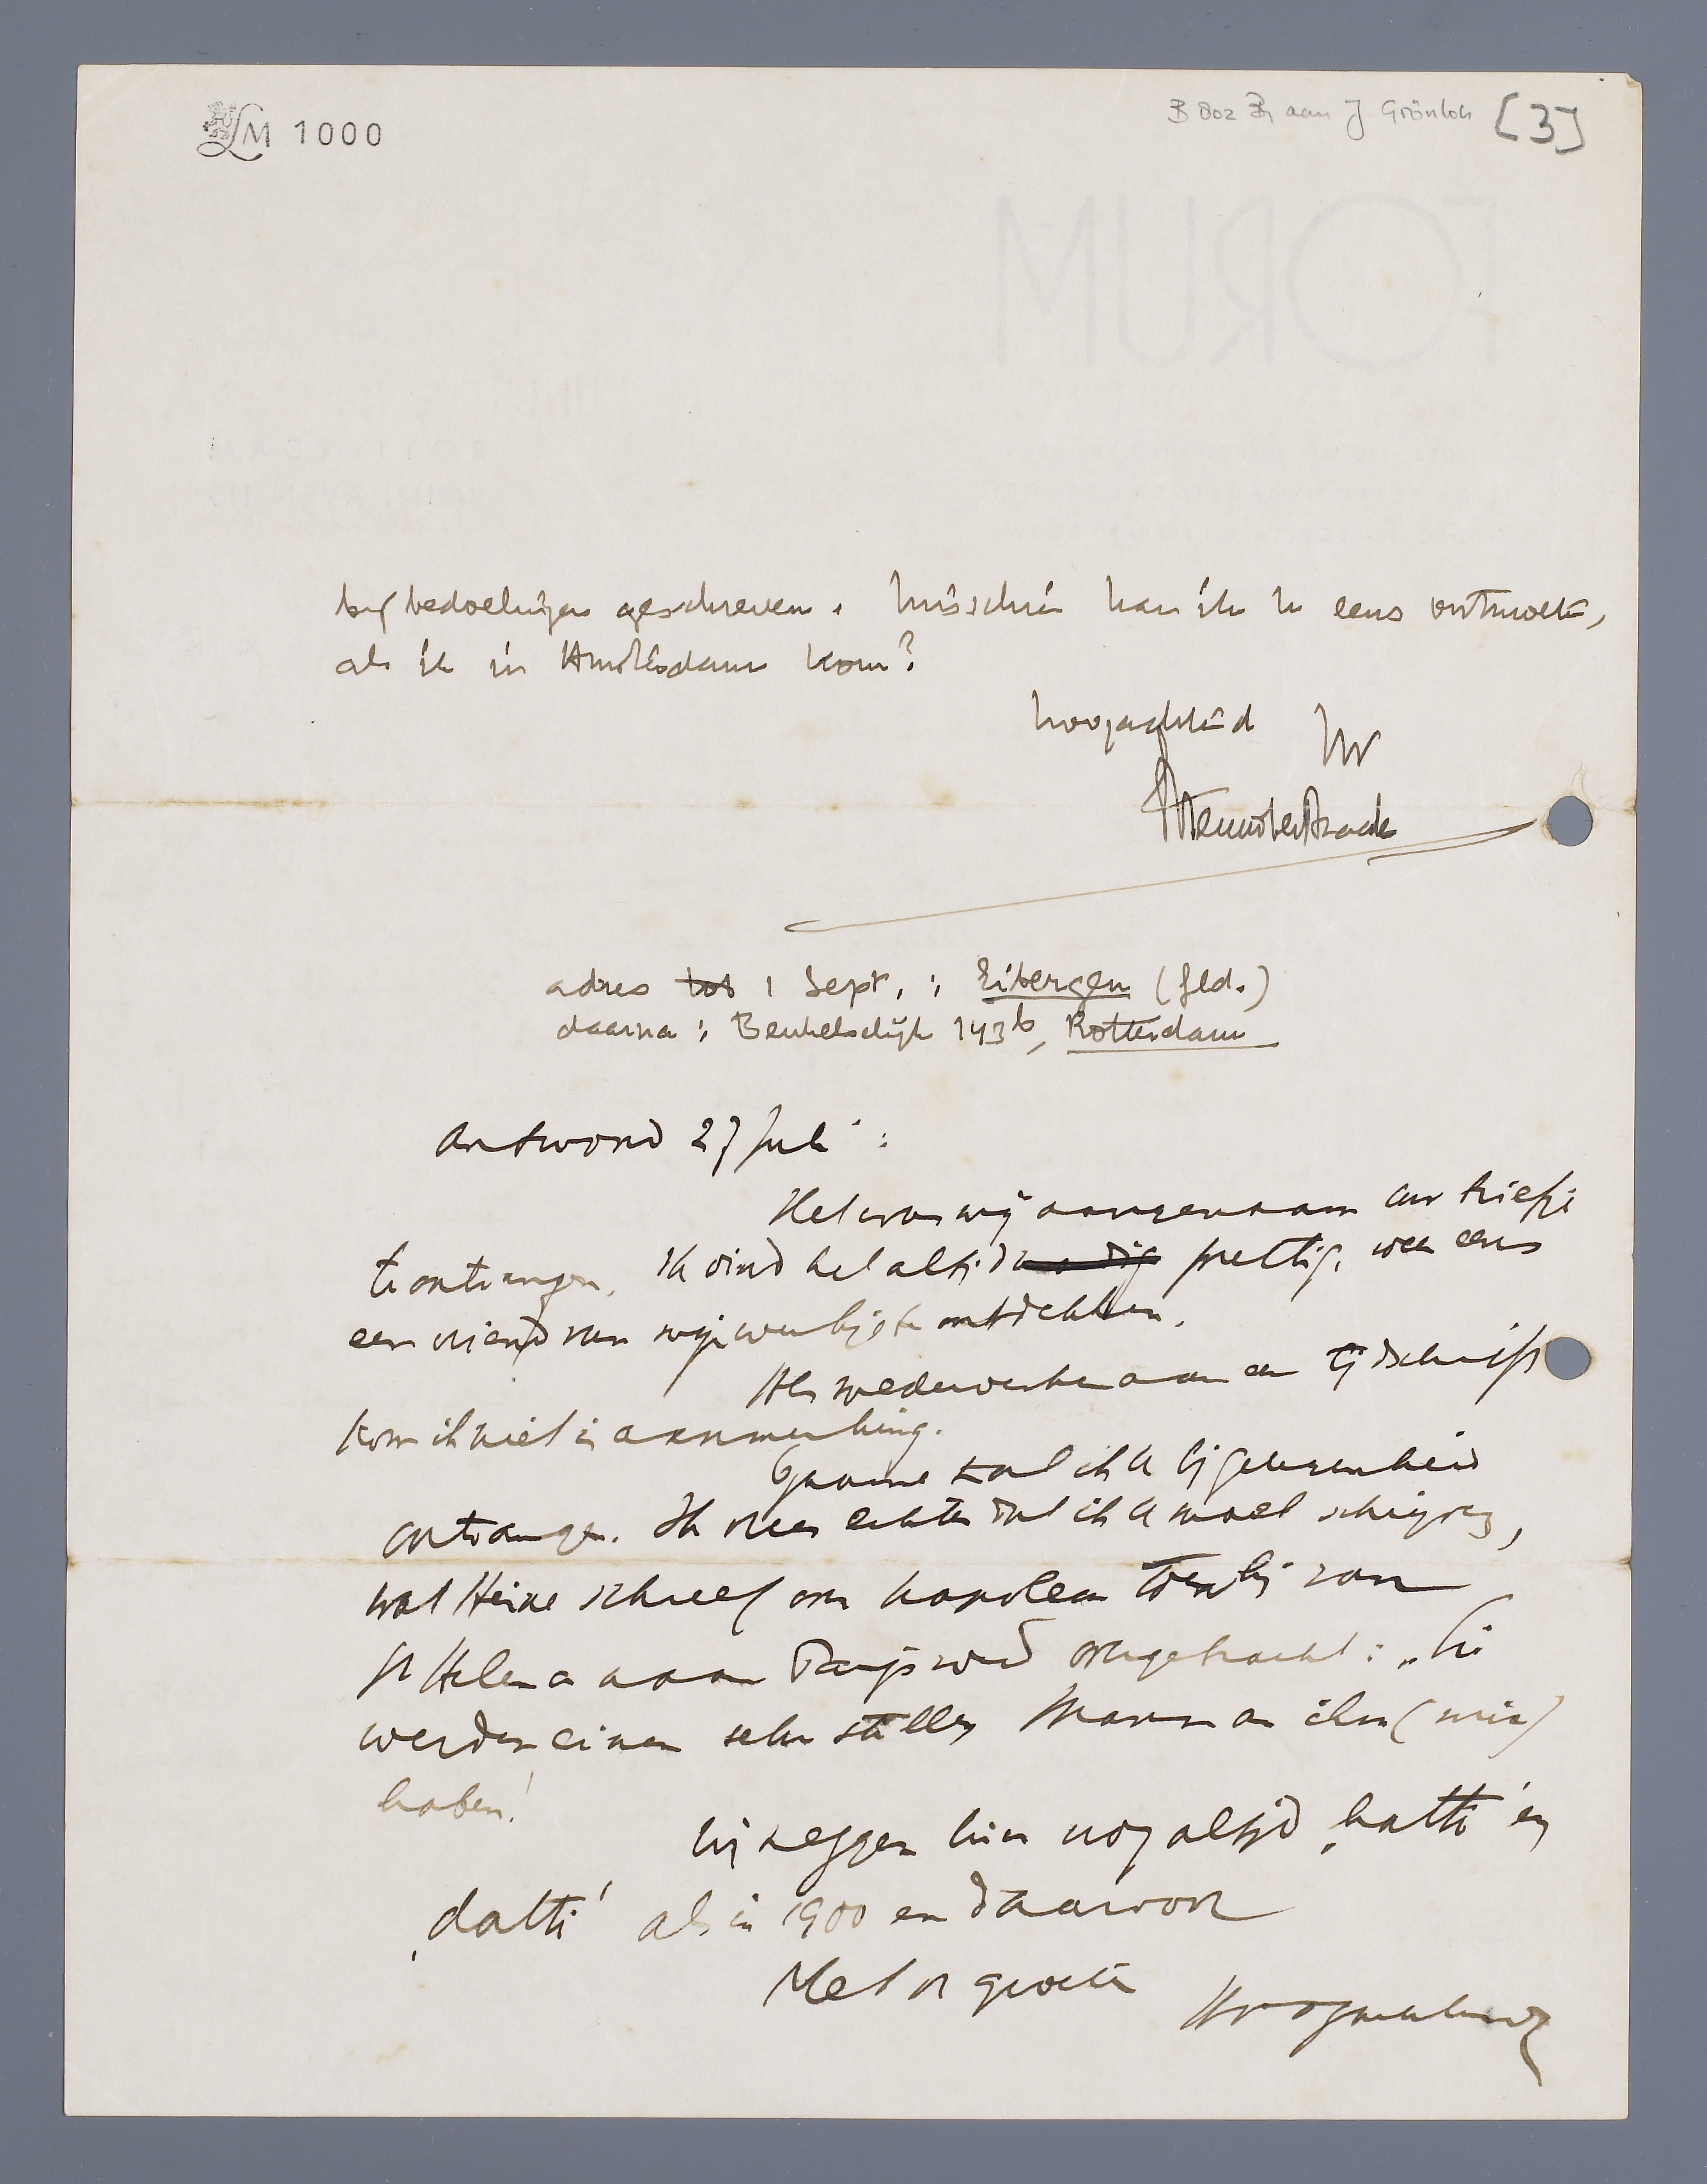 LM 1000
B 002 B1 aan J. Grönloh [3]
FORUM
ROTTERDAM
bijbedoelingen geschreven. Misschien kan ik U eens ontmoeten,
als ik in Amsterdam kom?
hoogachtend Uw
Menno ter Braak
adres tot 1 Sept. : Eibergen (Geld.)
daarna : Beukelsdijk 143b, Rotterdam
Antwoord 27 Juli :
Het was mij aangenaam Uw briefje
te ontvangen. Ik vind het altijd nodig prettig, weer eens
een vriend van mijn werkjes te ontdekken.
Als medewerker aan een tijdschrift
kom ik niet in aanmerking.
Gaarne zal ik U bij gelegenheid
ontvangen. Ik vrees echter dat ik U moet schrijven,
wat Heine schreef over Napoleon toen hij van
St Helena naar Parijs werd overgebracht : „Sie
werden einen sehr stillen Mann an ihm (mir)
haben!
Wij zeggen hier nog altijd ‚hatti' en
‚datti' als in 1900 en daarvoor
Met vr groeten
Hoogachtend